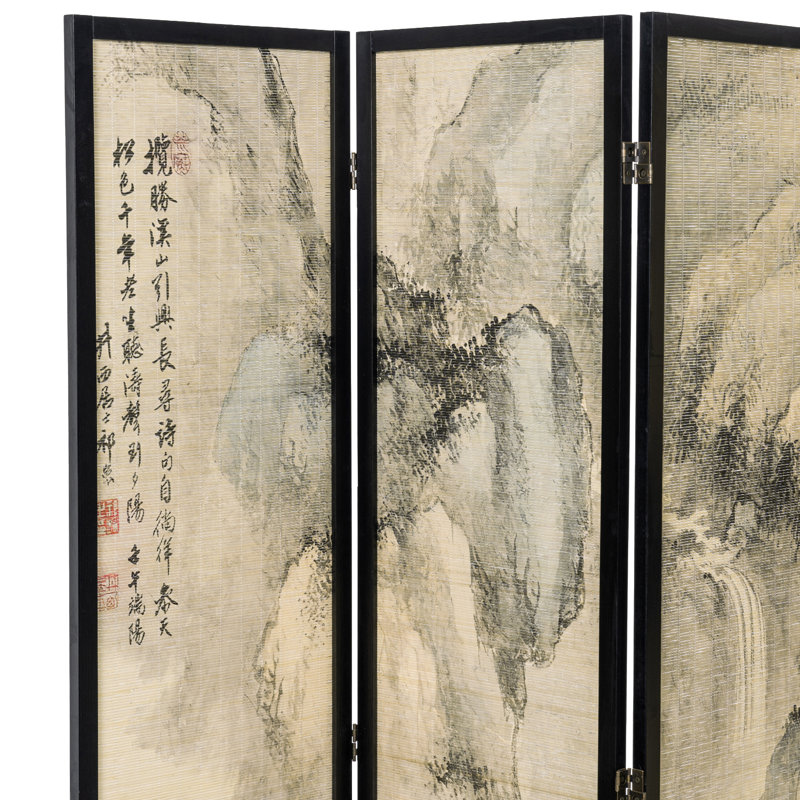 攬勝溪山引興長尋詩向自徜徉參天
松色千年老坐聽濤聲到夕陽 午端陽
西居士